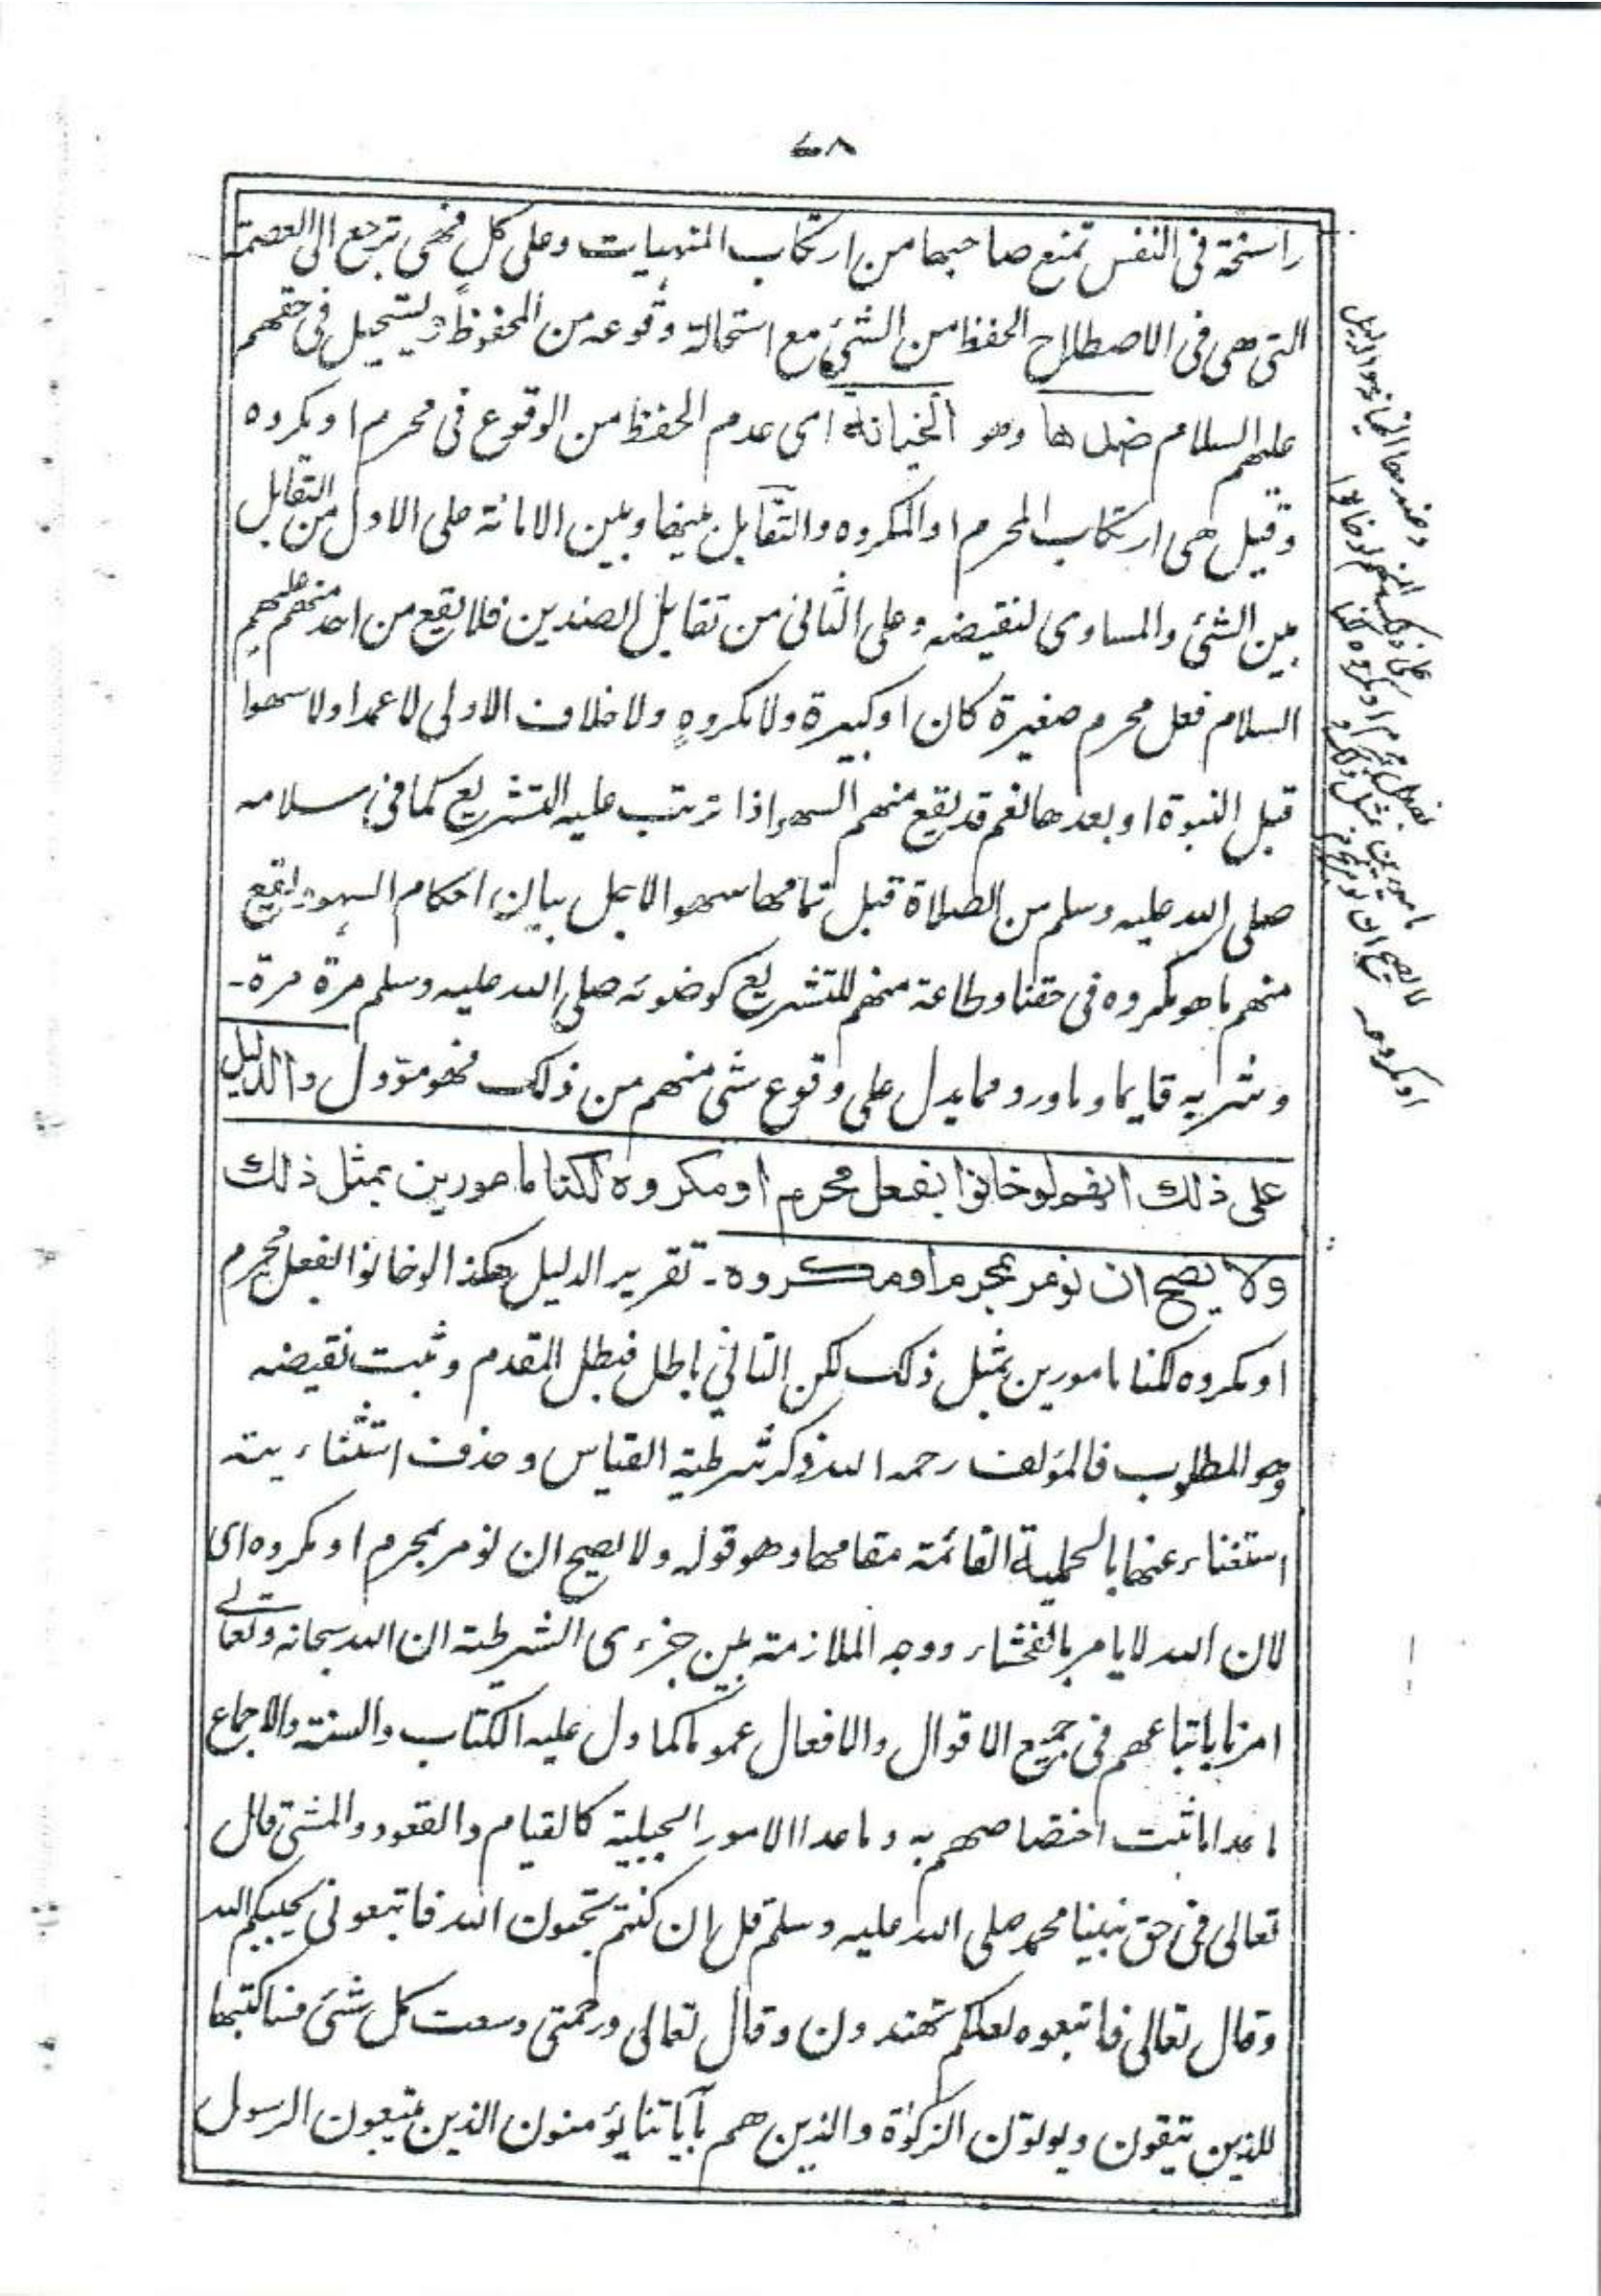 ٧٨
راسخة فى النفس تمنع صاحبها من ارتكاب المنهيات وعلى كلٍ فهى ترجع الى العصمة
التى هى فى الاصطلاح الحفظ من الشئ مع استحالة وقوعه من المحفوظ ويستحيل فى حقهم
عليهم السلام ضدها وهو الخيانة اى عدم الحفظ من الوقوع فى محرم او مكروه
وقيل هى ارتكاب المحرم او المكروه والتقابل بينها وبين الامانة على الاول من التقابل
بين الشئ والمساوى لنقيضه وعلى الثانى من تقابل الضدين فلا يقع من احد منهم عليهم
السلام فعل محرم صغيرة كان او كبيرة ولا مكروهٍ ولا خلاف الاولى لا عمدا ولا سهوا
قبل النبوة او بعدها نعم قد يقع منهم السهو اذا ترتب عليه التشريع كما فى سلامه
صلى الله عليه وسلم من الصلاة قبل تمامها سهوا لاجل بيان احكام السهو ويقع
منهم ما هو مكروه فى حقنا وطاعة منهم للتشريع كوضوئه صلى الله عليه وسلم مرة مرة-
وشربه قايما وما ورد مما يدل على وقوع شئ منهم من ذلك فهو مؤول والدليل
على ذلك انهم لو خانوا بفعل محرم او مكروه لكنا مامورين بمثل ذلك
ولا يصح ان نومر بمحرم او مكروه - تقرير الدليل هكذا لو خانوا بفعل محرم
او مكروه لكنا مامورين بمثل ذلك لكن التالي باطل فبطل المقدم وثبت نقيضه
وهو المطلوب فالمؤلف رحمه الله ذكر شرطية القياس وحذف استثناء يته
استغناء عنها بالحملية القائمة مقامها وهو قوله ولا يصح ان نومر بمحرم او مكروه اى
لان الله لا يامر بالفحشاء ووجه الملازمة بين جزء ى الشرطية ان الله سبحانه وتعالى
امرنا باتباعهم فى جميع الاقوال والافعال عموما كما دل عليه الكتاب والسنة والاجماع
ما عدا ما ثبت اختصاصهم به وما عدا الامور الجبلية كالقيام والقعود والمشى قال
تعالى فى حق نبينا محمد صلى الله عليه وسلم قل ان كنتم تحبون الله فاتبعونى يحببكم الله
وقال تعالى فاتبعوه لعلكم تهتدون وقال تعالى ورحمتى وسعت كل شئ فساكتبها
للذين يتقون ويوتون الزكوٰة والذين هم بآياتنا يؤمنون الذين يتبعون الرسول
وضدها الخيانة والدليل
على ذلك انهم لو خانوا
بفعل محرم او مكروه لكنا
مامورين بمثل ذلك و
لا يصح ان نومر بمحرم
او مكروه